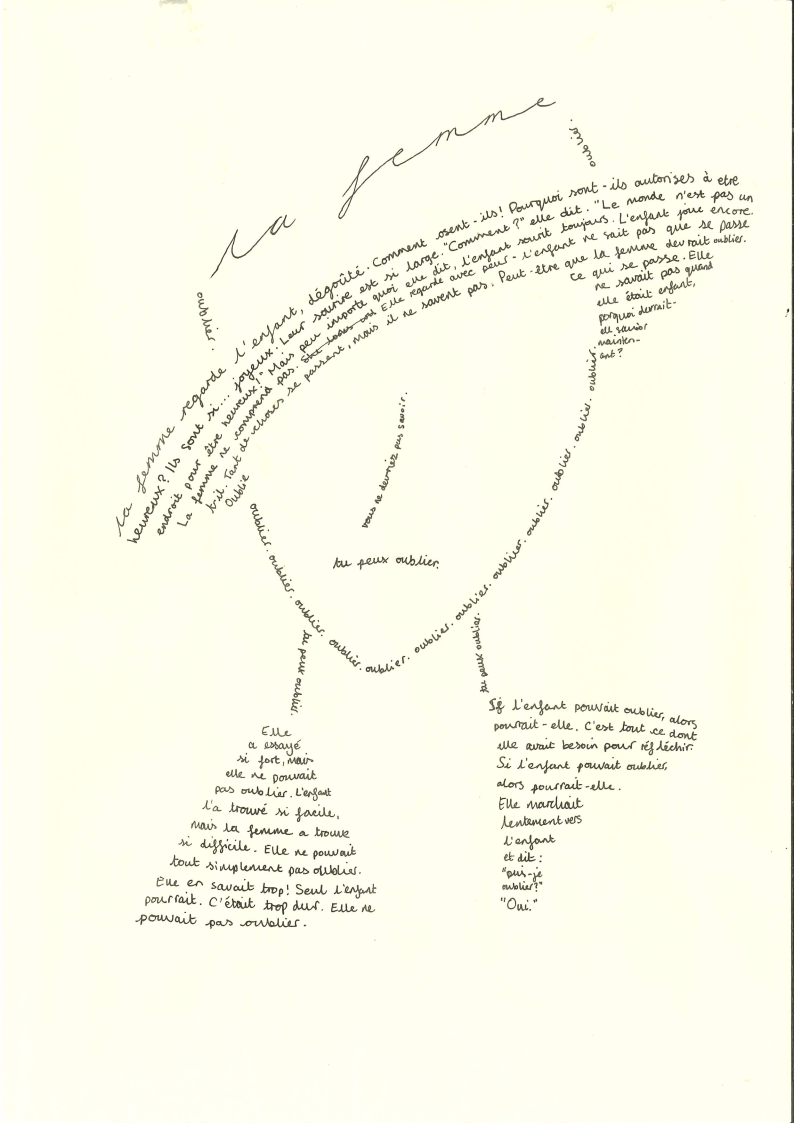 La femme
oublier.
oublier.
La femme regarde l'enfant, dégoûté. Comment osent-ils! Pourquoi sont-ils autorises à etre
heureux? Ils sont si... joyeux. Leur sourire est si large. "Comment?" elle dit. "Le monde n'est pas un
endroit pour être heureux!" Mais peu importe quoi elle dit, l'enfant sourit toujours. L'enfant joue encore.
La femme ne comprend pas. Elle regarde avec peur - l'enfant ne sait pas que se passe
t-il. Tant de choses se passent, mais il ne savent pas. Peut-être que la femme devrait oublier.
Oublié
ce qui se passe. Elle
ne savait pas quand
elle était enfant,
porquoi devrait-
ell savoir
mainten-
ant?
vous ne devriez pas savoir.
tu peux oublier.
oublier. oublier. oublier. oublier. oublier. oublier. oublier. oublier. oublier. oublier. oublier. oublier.
tu peux oublier.
tu peux oublier.
Elle
a essayé
si fort, mais
elle ne pouvait
pas oublier. L'enfant
l'a trouvé si facile,
mais la femme a trouvé
si difficile. Elle ne pouvait
tout simplement pas oublier.
Elle en savait trop! Seul l'enfant
pourrait. C'était trop dur. Elle ne
pouvait pas oublier.
Si l'enfant pouvait oublier, alors
pourrait-elle. C'est tout ce dont
elle avait besoin pour réfléchir.
Si l'enfant pouvait oublier,
alors pourrait-elle.
Elle marchait
lentement vers
l'enfant
et dit:
"puis-je
oublier?"
"Oui."